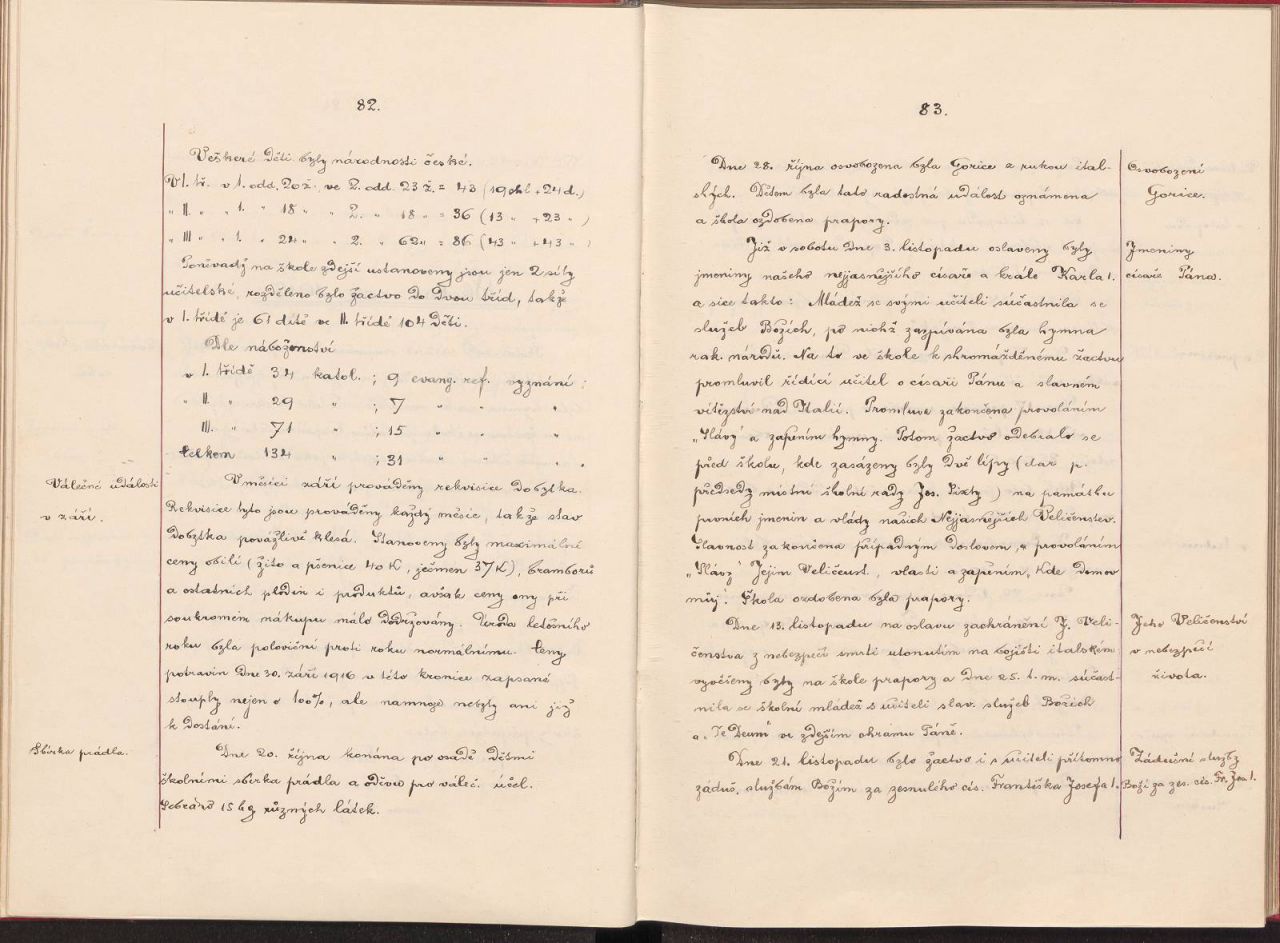 82.
Veškeré děti byly národnosti české.
V I. tř. v 1. odd. 20 ž. ve 2. odd. 23 ž. = 43 (19 chl + 24 d.)
„ II. „ „ 1. „ 18 „ „ 2. „ 18 „ = 36 (13 „ + 23 „ )
„ III „ „ 1. „ 24 „ „ 2. „ 62 „ = 86 (43 „ + 43 „ )
Poněvadž na škole zdejší ustanoveny jsou jen 2 síly
učitelské, rozděleno bylo žactvo do dvou tříd, takže
v I. třídě je 61 dítě ve II. třídě 104 dětí.
Dle náboženství
v I. třídě 34 katol. ; 9 evang. ref. vyznání ;
„ II. „ 29 „ ; 7 „ „ „
III. „ 71 „ ; 15 „ „ „
Celkem 134 „ ; 31 „ „ „ .
Válečné události
v září.
V měsíci září prováděny rekvisice dobytka.
Rekvisice tyto jsou prováděny každý měsíc, takže stav
dobytka povážlivě klesá. Stanoveny byly maximální
ceny obilí (žito a pšenice 40 K, ječmen 37 K), bramborů
a ostatních plodin i produktů, avšak ceny ony při
soukromém nákupu málo dodržovány. Úroda letošního
roku byla poloviční proti roku normálnímu. Ceny
potravin dne 30. září 1916 v této kronice zapsané
stouply nejen o 100%, ale namnoze nebyly ani již
k dostání.
Sbírka prádla.
Dne 20. října konána po osadě dětmi
školními sbírka prádla a oděvu pro váleč. účel.
Sebráno 15 kg různých látek.
83.
Dne 28. října osvobozena byla Gorice z rukou ital-
ských. Dětem byla tato radostná událost oznámena
a škola ozdobena prapory.
Osvobození
Gorice.
Již v sobotu dne 3. listopadu oslaveny byly
jmeniny našeho nejjasnějšího císaře a krále Karla I.
a sice takto: Mládež se svými učiteli súčastnila se
služeb Božích, po nichž zazpívána byla hymna
rak. národů. Na to ve škole k shromážděnému žactvu
promluvil řídící učitel o císaři Pánu a slavném
vítězství nad Italií. Promluva zakončena provoláním
„Slávy“ a zapěním hymny. Potom žactvo odebralo se
před školu, kde zasázeny byly dvě lípy (dar p.
předsedy místní školní rady Jos. Sixty) na památku
prvních jmenin a vlády našich Nejjasnějších Veličenstev.
Slavnost zakončena případným doslovem, provoláním
„Slávy“ Jejím Veličenst., vlasti a zapěním „Kde domov
můj“. Škola ozdobena byla prapory.
Jmeniny
císaře Pána.
Dne 13. listopadu na oslavu zachránění J. Veli-
čenstva z nebezpečí smrti utonutím na bojišti italském
vyvěšeny byly na škole prapory a dne 25. t. m. súčast-
nila se školní mládež s učiteli slav. služeb Božích
a „Te Deum“ ve zdejším chrámu Páně.
Jeho Veličenství
v nebezpečí
života.
Dne 21. listopadu bylo žactvo i s učiteli přítomno
zaduš. službám Božím za zesnulého cís. Františka Josefa I.
Zádušní služby
Boží za zes. cís. Fr. Jos. I.